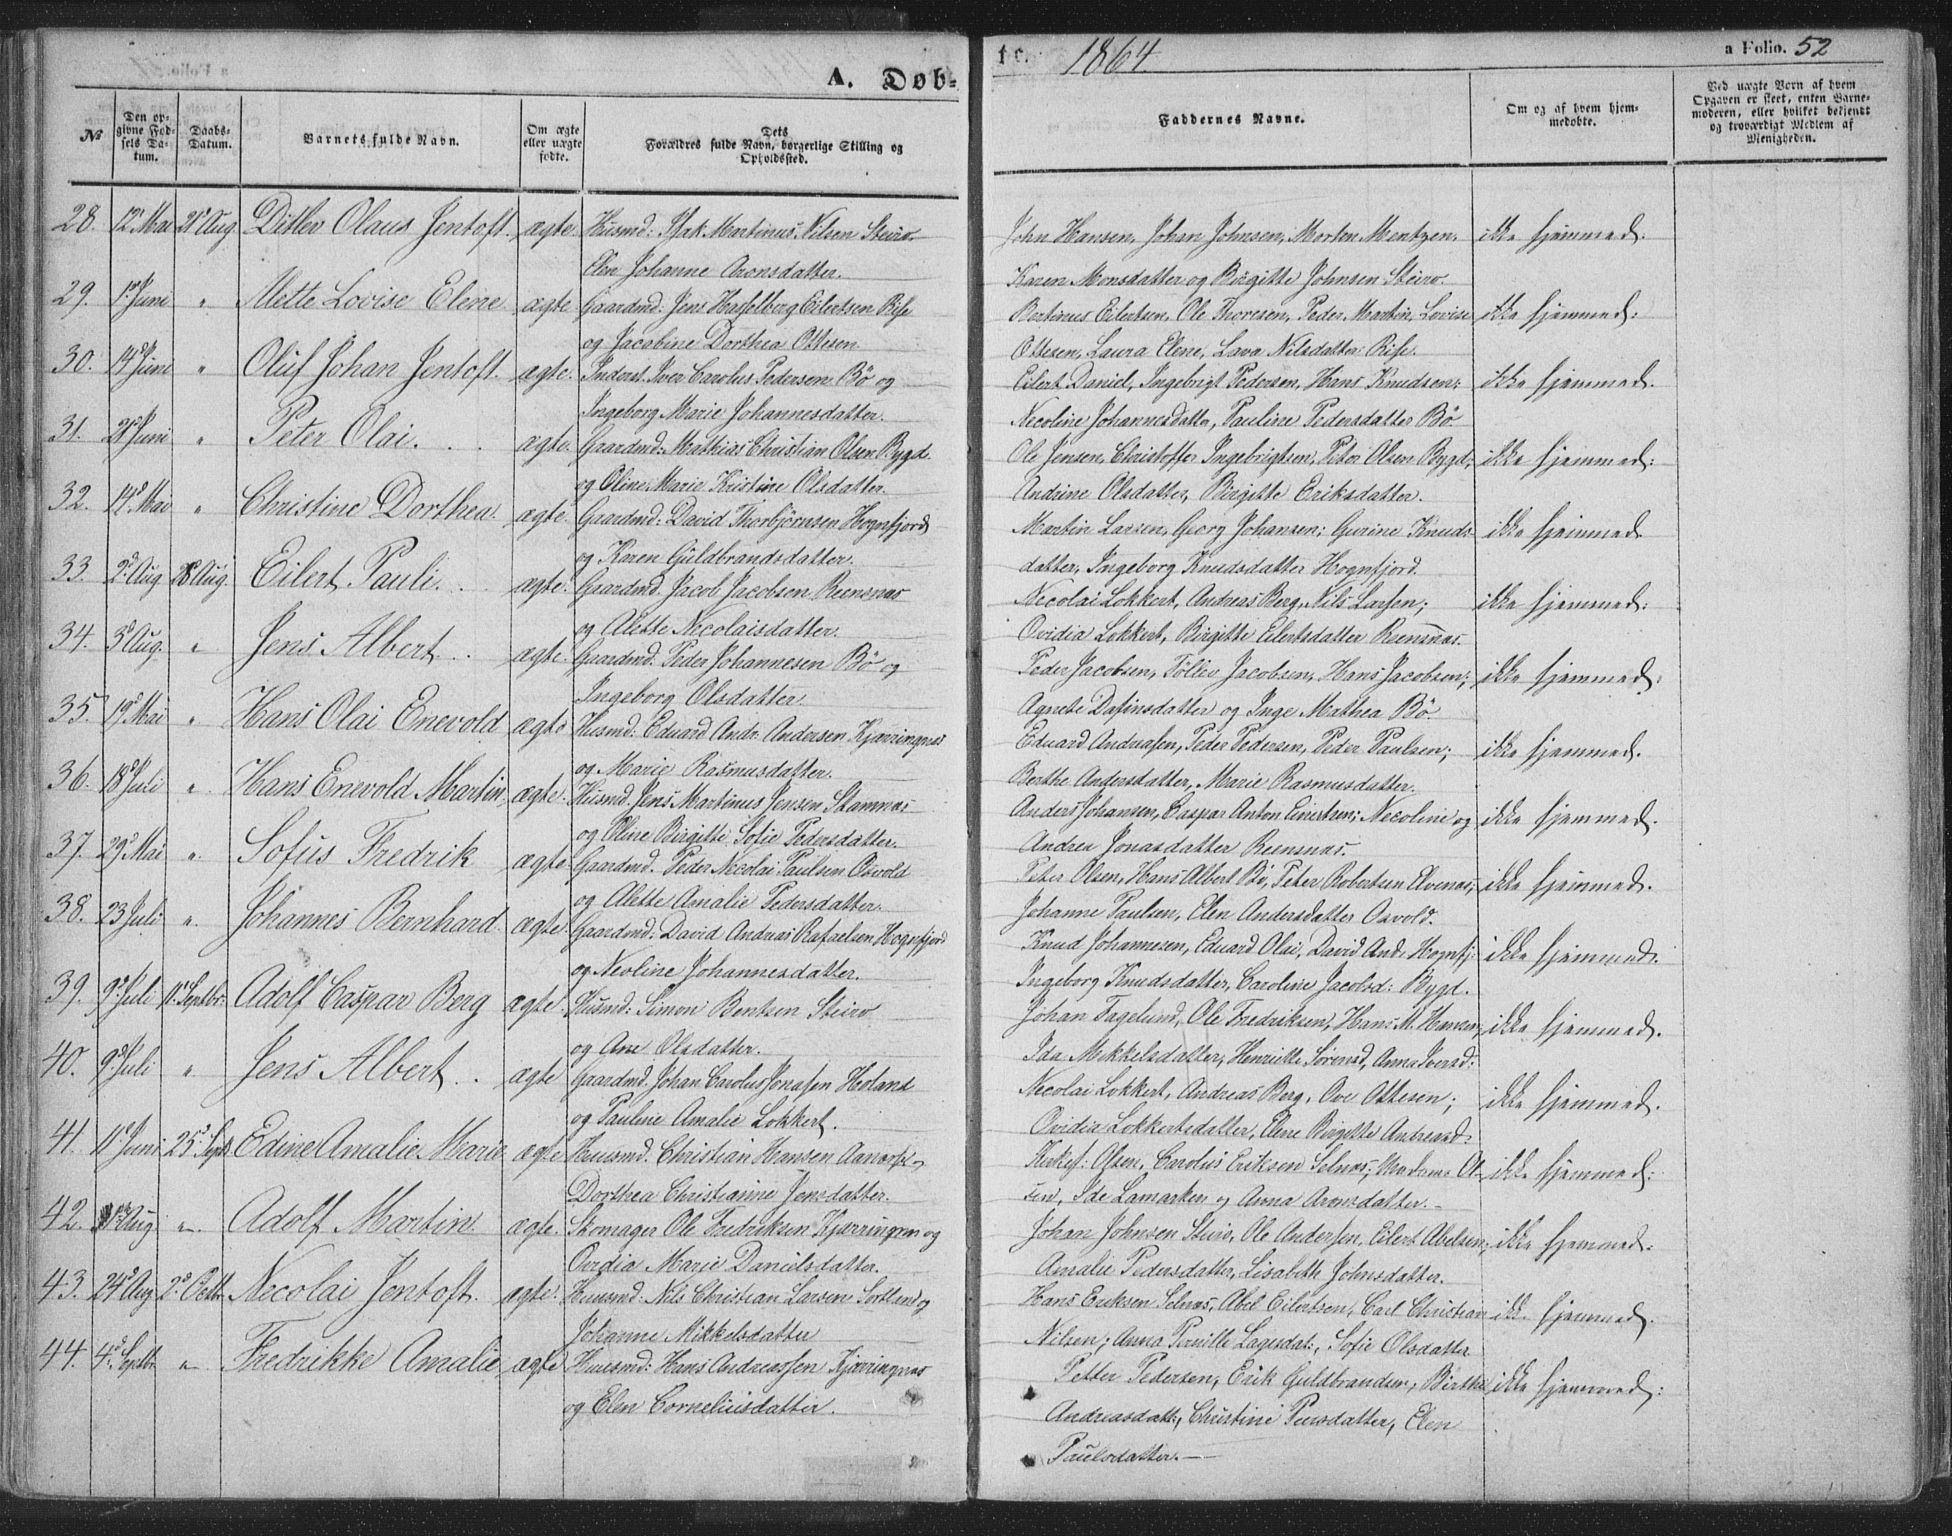 A. Døb-
te. 1864. a Folio. 52
No
Den op-
givne Fød-
sels Da-
tum.
Daabs-
Datum.
Barnets fulde Navn.
Om ægte
eller uægte
fødte.
Dets
Forældres fulde Navn, borgerlige Stilling og
Opholdssted.
Faddernes Navne.
Om og af hvem hjem-
medøbte.
Ved uægte Børn af hvem
Opgaven er skeet, enten Barne-
moderen, eller hvilket bekjendt
og troværdigt Medlem af
Menigheden.
28. 12 Mai 21 Aug Ditlev Olaus Jentoft. ægte. Husmd: Isak Martinus Nilsen Steiro.
Elen Johanne Aronsdatter.
John Hansen, Johan Johnsen, Morten Mentzen, ikke hjemmed.
Karen Monsdatter og Birgitte Johnsen Steiro.
29. 1 Juni " Mette Lovise Elene ægte Gaardmd: Jens Hasselberg Eilertsen Rise
og Jacobine Dorthea Ottesen.
Bertinus Eilertsen, Ole Thoresen, Peder Martin, Lovise ikke hjemmed:
Ottesen, Laura Elene, Lava Nilsdatter Rise.
30. 14 Juni " Oluf Johan Jentoft. ægte. Inderst. Iver Carolus Pedersen Bö og
Ingeborg Marie Johannesdatter.
Eilert Daniel, Ingebrigt Pedersen, Hans Knudsen; ikke hjemmed.
Necoline Johannesdatter, Pauline Pedersdatter Bö
31. 21 Juni " Peter Olai. ægte. Gaardmd: Mathias Christian Olsen Bygd
og Oline Marie Kristine Olsdatter.
Ole Jensen, Christoffer Ingebrigtsen, Peter Olsen Bygd; ikke hjemmed:
Andrine Olsdatter, Birgitte Eriksdatter.
32. 14 Mai " Christine Dorthea. ægte. Gaardmd: David Thorbjörnsen Hognfjord
og Karen Guldbrandsdatter.
Martin Larsen, Georg Johansen; Gurine Knuds- ikke hjemmed
datter, Ingeborg Knudsdatter Hognfjord.
33. 2 Aug 28 Aug. Eilert Pauli. ægte. Gaardmd. Jacob Jacobsen Reensnæs
og Alette Necolaisdatter.
Necolai Lokkert, Andreas Berg, Nils Larsen; ikke hjemmed:
Ovidia Lokkert, Birgitte Eilertsdatter Reensnæs.
34. 3 Aug. " Jens Albert. ægte. Gaardmd. Peder Johannesen Bö og
Ingeborg Olsdatter.
Peder Jacobsen, Töllev Jacobsen, Hans Jacobsen; ikke hjemmed.
Agnete Dasinsdatter og Inge Mathea Bö.
35. 19 Mai " Hans Olai Enevold ægte Husmd: Eduard Andr. Andersen Kjærringnæs
og Marie Rasmusdatter.
Eduard Andreasen, Peder Pedersen, Peder Paulsen; ikke hjemmed.
Berthe Andersdatter, Marie Rasmusdatter.
36. 18 Juli " Hans Enevold Martin ægte. Husmd. Jens Martinus Jensen Stamnæs
og Oline Birgitte Sofie Pedersdatter.
Anders Johansen, Caspar Anton Einertsen; Necoline og ikke hjemmed.
Andrea Jonasdatter Reensnæs.
37. 29 Mai " Sofus Fredrik ægte. Gaardmd. Peder Necolai Paulsen Osvold
og Alette Amalie Pedersdatter.
Peter Olsen, Hans Albert Bö, Peter Robertsen Elvenæs; ikke hjemmed.
Johanne Paulsen, Elen Andersdatter Osvold.
38. 23 Juli " Johannes Bernhard. ægte. Gaardmd: David Andreas Rafaelsen Hognfjord
og Neoline Johannesdatter.
Knud Johannesen, Eduard Olai, David And: Hognfj: ikke hjemmed.
Ingeborg Knudsdatter, Caroline Jacobsd: Bygd.
39. 9 Juli 11 Septbr: Adolf Caspar Berg ægte. Husmd: Simon Bentsen Steiro
og Ane Olsdatter.
Johan Fagelund, Ole Fredriksen, Hans M. Hansen; ikke hjemmed.
Ida Mikkelsdatter, Henriette Sörensd, Anna Iversd:
40. 9 Juli " Jens Albert. ægte Gaardmd. Johan Carolus Jonasen Holand
og Pauline Amalie Lokkert.
Necolai Lokkert, Andreas Berg, Ove Ottesen; ikke hjemmed.
Ovidia Lokkertsdatter, Elene Birgitte Andreasd:
41. 11 Juni 25 Sept. Edine Amalie Marie ægte Huusmd. Christian Hansen
Dorthea Christianne Jensdatter.
Kirkes: Olsen, Carolus Eriksen Selnæs; Madame Ol- ikke hjemmed:
sen, Ide Lamarken og Anna Aronsdatter.
42. Aug " Adolf Martin. ægte. Skomager Ole Fredriksen Kjærringnæs og
Ovidia Marie Danielsdatter.
Johan Johnsen Steiro, Ole Andersen, Eilert Abelsen; ikke hjemmed:
Amalie Pedersdatter, Lisabeth Johnsdatter.
43. 24 Aug 2 Octb. Necolai Jentoft. ægte. Huusmd: Nils Christian Larsen Sortland og
Johanne Mikkelsdatter
Hans Eriksen Selnæs, Abel Eilertsen, Carl Christian ikke hjemmed.
Nilsen; Anna Pernille Larsdat:, Sofie Olsdatter
44. 4 Septbr. " Fredrikke Amalie ægte Huusmd: Hans Andreassen Kjærringnæs
og Elen Corneliusdatter.
Petter Pedersen, Erik Guldbrandsen, Birthe ikke hjemmed:
Andreasdatt:, Christine Peersdatter, Elen
Paulsdatter.